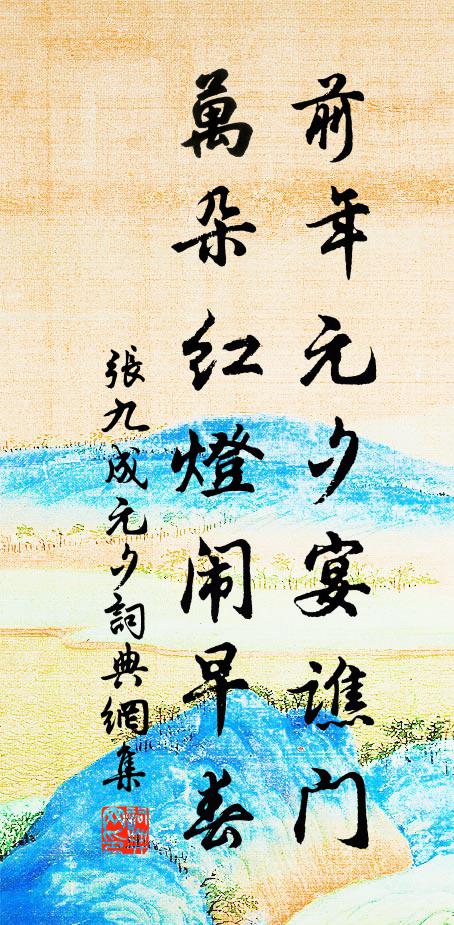 前年元夕宴譙門
萬朵红燈闹早春
張九成元夕詞典網集